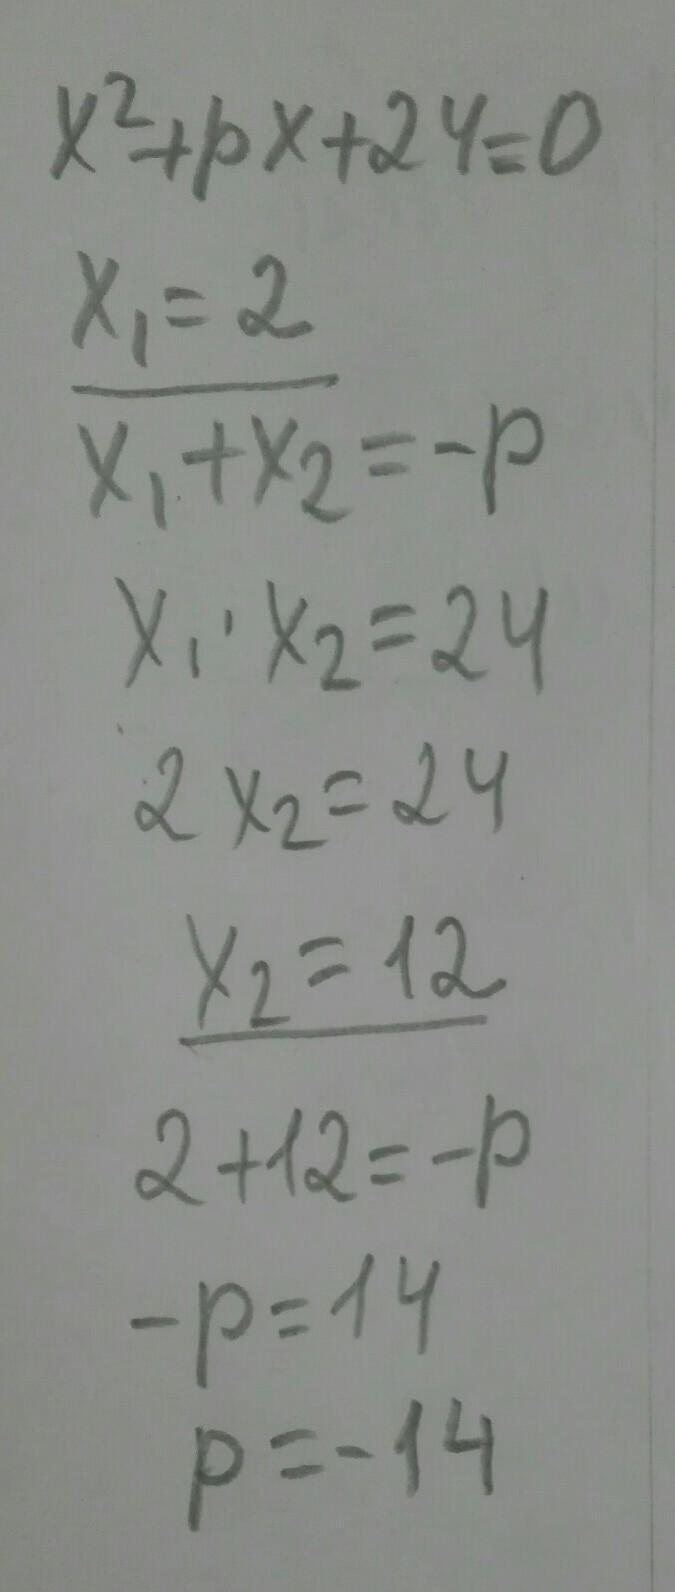 x²+px+24=0
x₁=2
x₁+x₂=-p
x₁·x₂=24
2x₂=24
x₂=12
2+12=-p
-p=14
p=-14